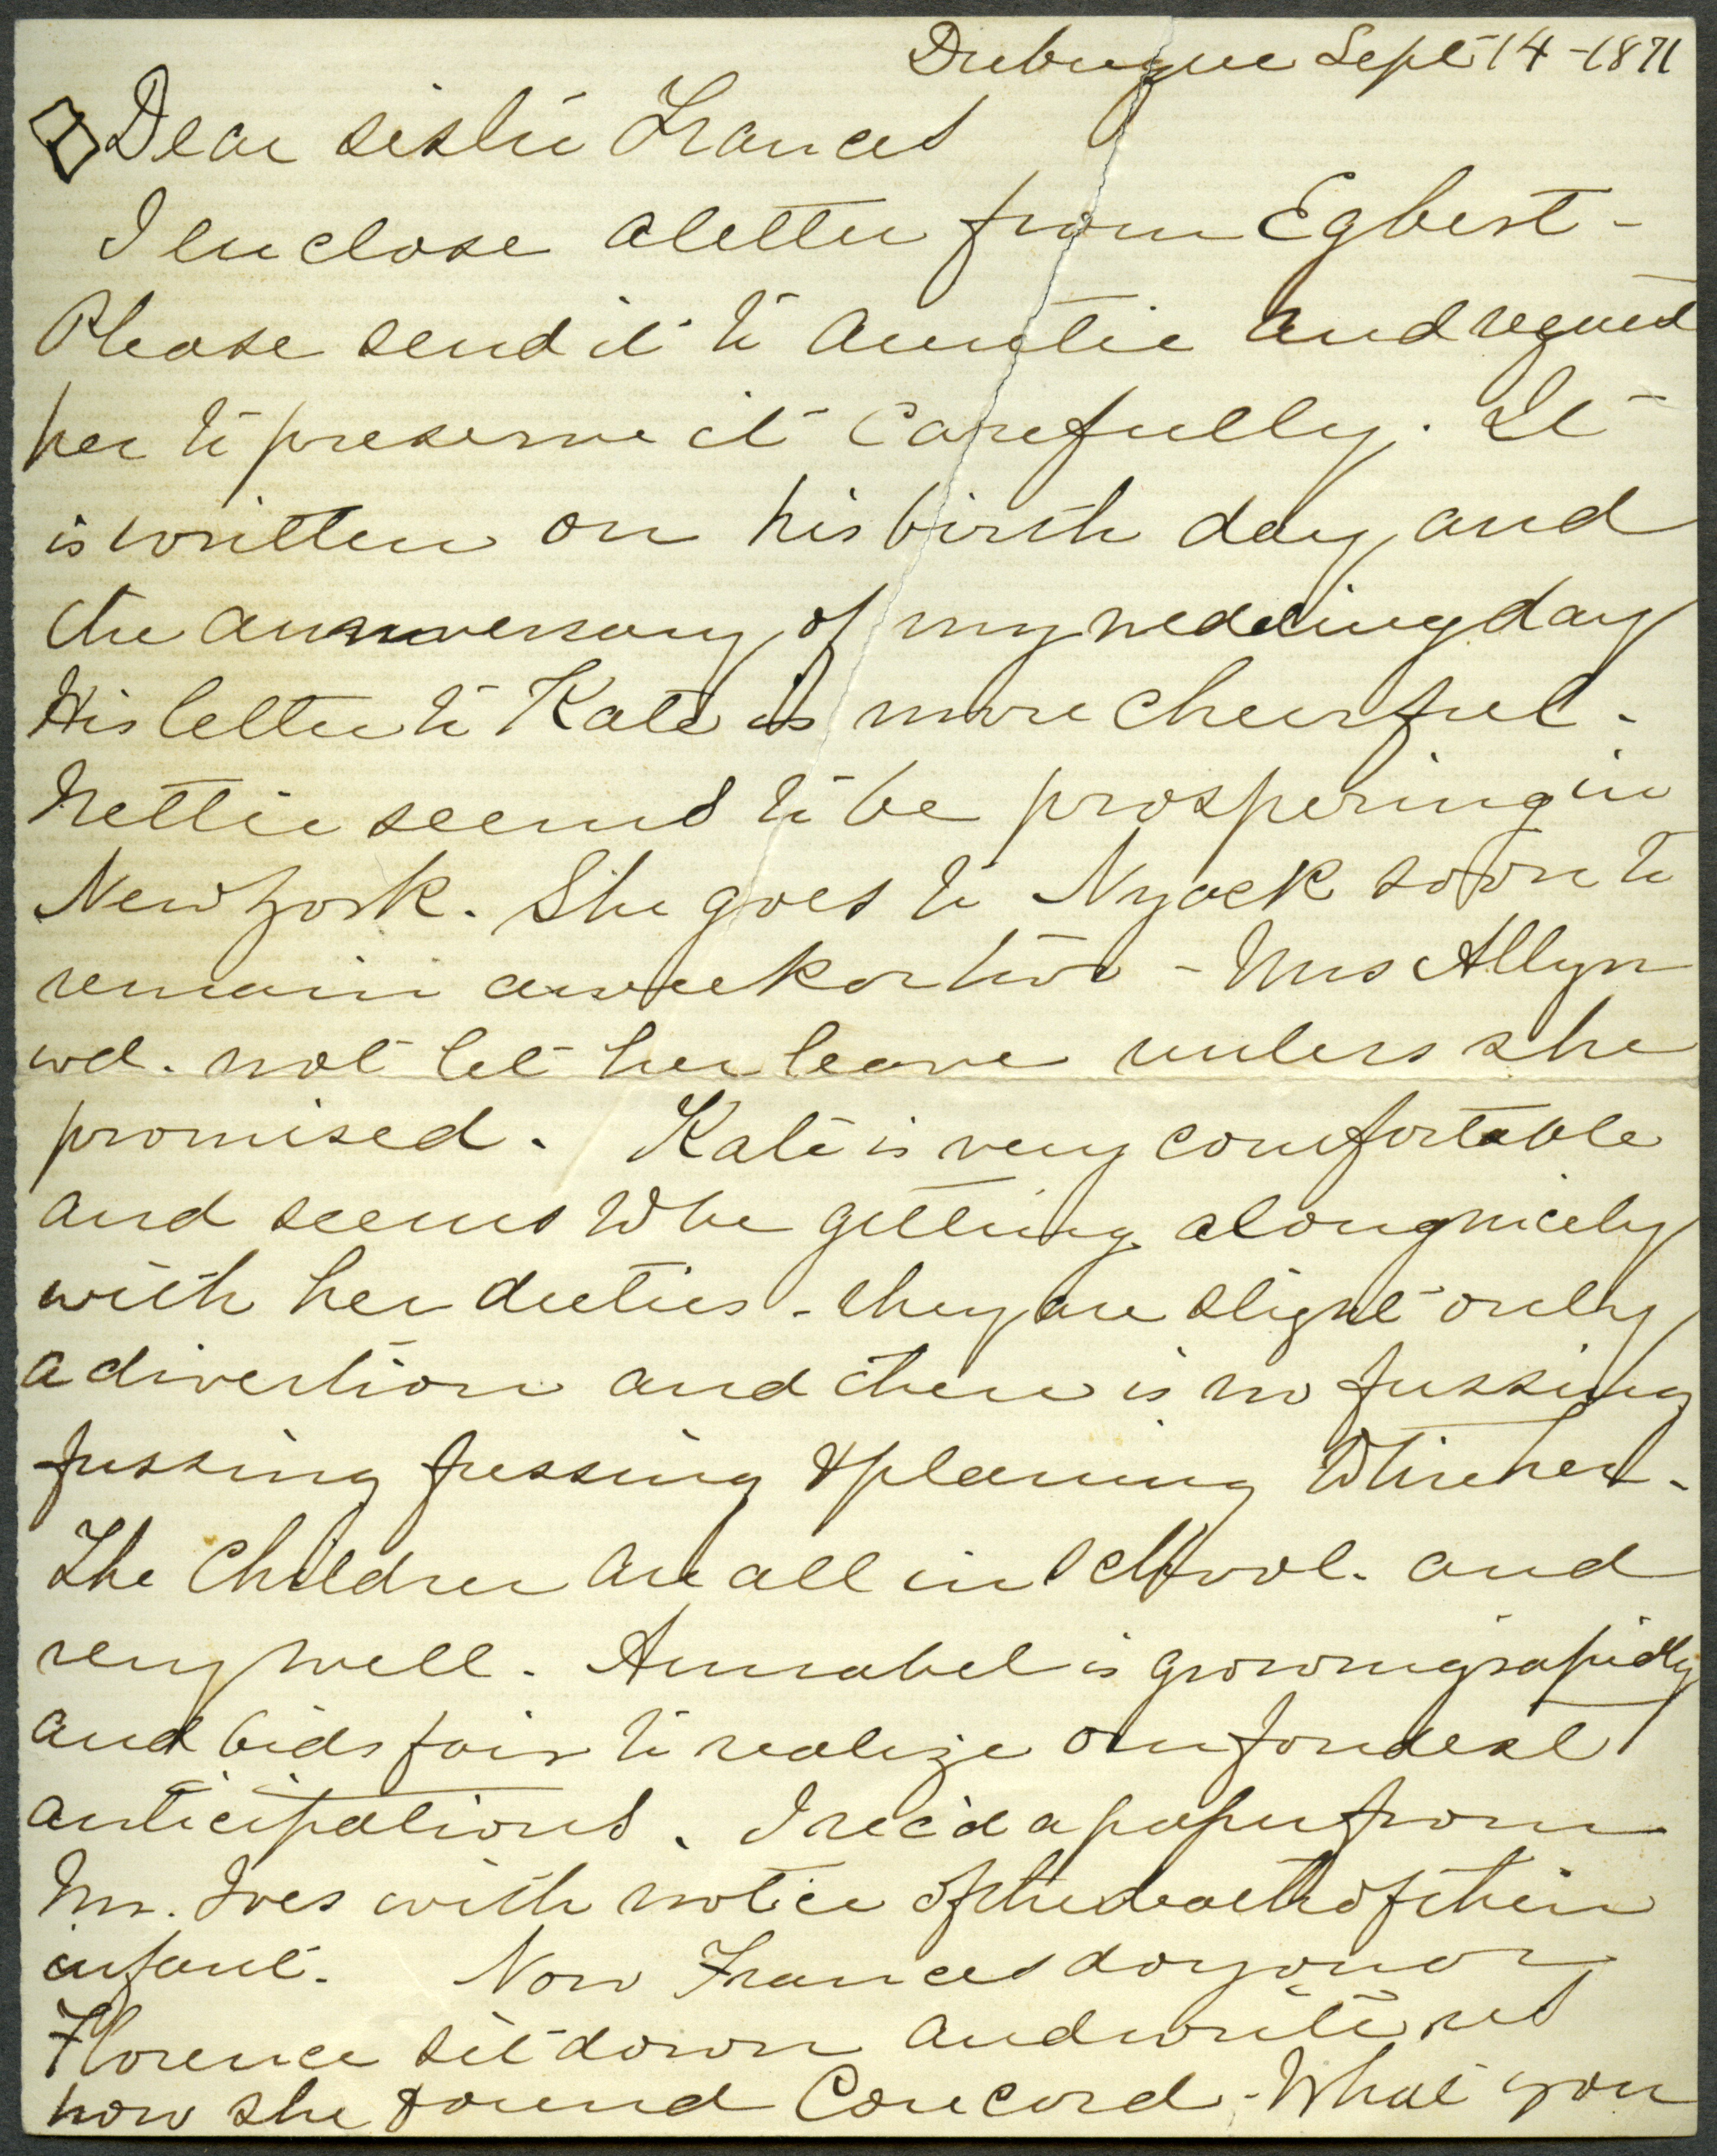 Dubuque Sept 14 - 1871
Dear sister Frances
I enclose a letter from Egbert -
Please send it to Auntie and request
her to preserve it carefully. It
is written on his birth day and
the anniversary of my wedding day
His letter to Kate is more cheerful.
Nettie seems to be prospering in
New York. She goes to Nyack soon to
remain a week or two - Mrs Allyn
wd. not let her leave unless she
promised. Kate is very comfortable
and seems to be getting along nicely
with her duties - they are slight only
a divertion and there is no fussing
fussing fussing & planing to tire her.
The Children are all in school. and
very well. Annabel is growing rapidly
and bids fair to realize our fondest
anticipations. I rec'd a paper from
Mr. Ives with notice of the death of their
infant. Now Frances do you or
Florence sit down and write us
how she found Concord - What you